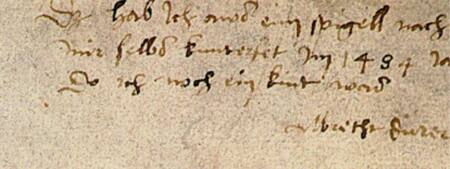 Dz hab Ich aws eim spigell nach
mir selbs kunterfet Im 1484 Ja
Do ich noch ein kint was
Albrecht Dürer